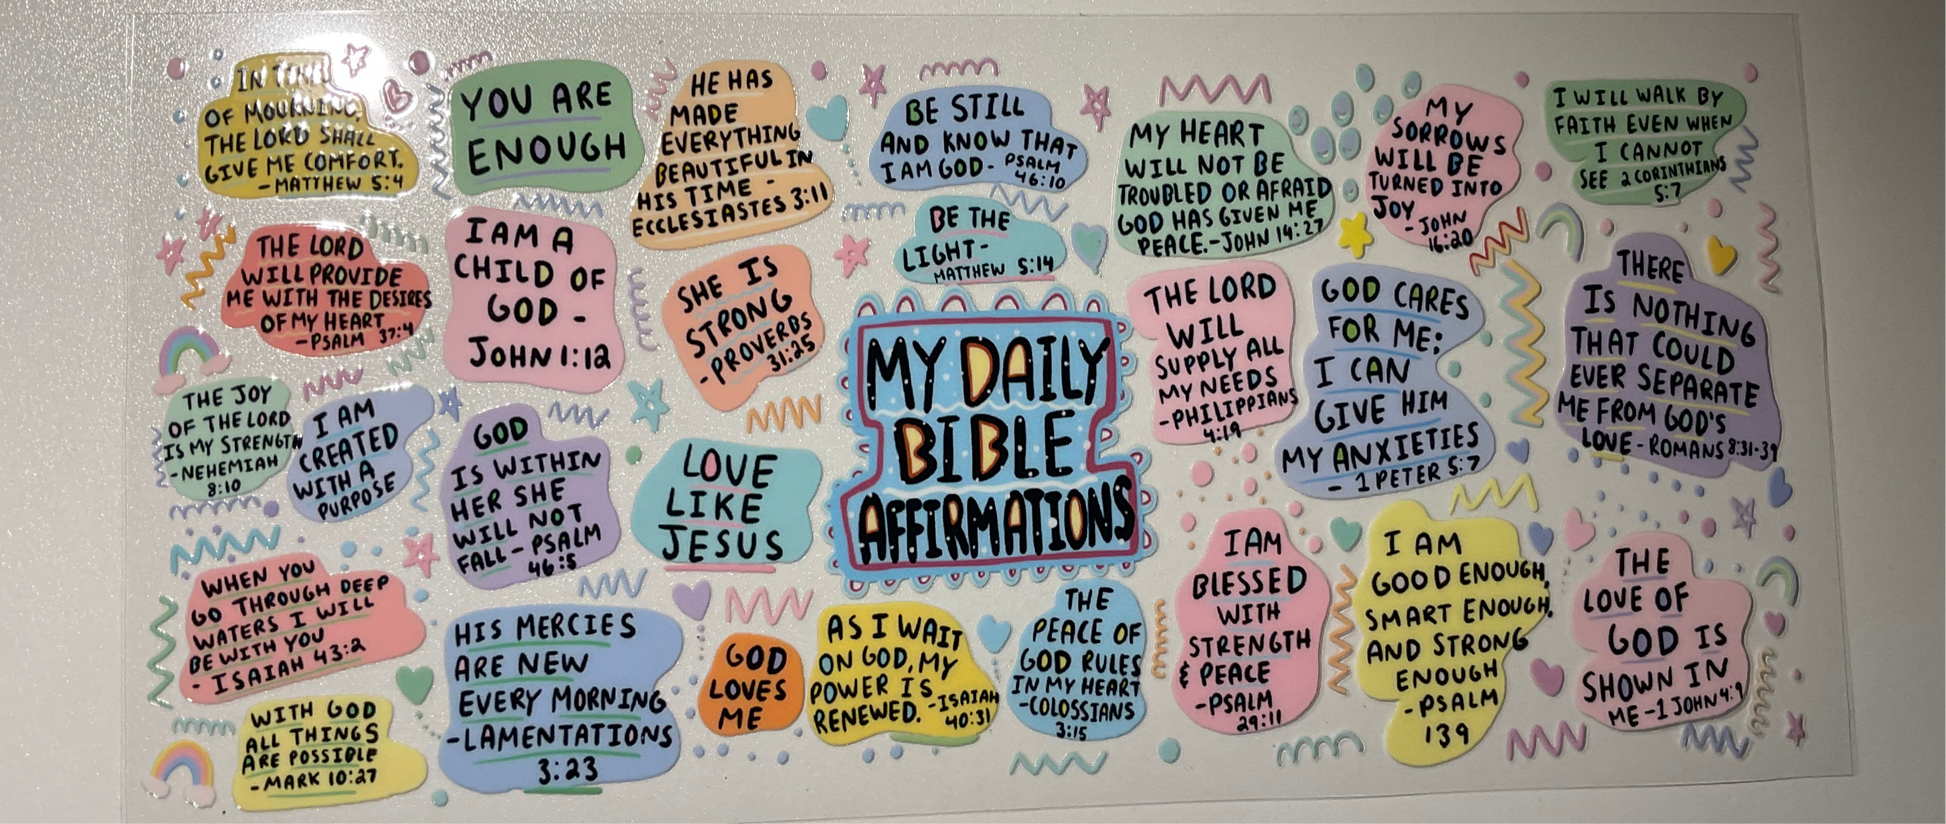 IN TIME
OF MOURNING,
THE LORD SHALL
GIVE ME COMFORT.
-MATTHEW 5:4
YOU ARE
ENOUGH
HE HAS
MADE
EVERYTHING
BEAUTIFUL IN
HIS TIME -
ECCLESIASTES 3:11
BE STILL
AND KNOW THAT
I AM GOD - PSALM
46:10
MY HEART
WILL NOT BE
TROUBLED OR AFRAID
GOD HAS GIVEN ME
PEACE.-JOHN 14:27
MY
SORROWS
WILL BE
TURNED INTO
JOY
-JOHN
16:20
I WILL WALK BY
FAITH EVEN WHEN
I CANNOT
SEE 2 CORINTHIANS
5:7
THE LORD
WILL PROVIDE
ME WITH THE DESIRES
OF MY HEART
-PSALM 37:4
I AM A
CHILD OF
GOD -
JOHN 1:12
SHE IS
STRONG
-PROVERBS
31:25
BE THE
LIGHT-
MATTHEW 5:14
THE LORD
WILL
SUPPLY ALL
MY NEEDS
-PHILIPPIANS
4:19
GOD CARES
FOR ME;
I CAN
GIVE HIM
MY ANXIETIES
- 1 PETER 5:7
THERE
IS NOTHING
THAT COULD
EVER SEPARATE
ME FROM GOD'S
LOVE - ROMANS 8:31-39
THE JOY
OF THE LORD
IS MY STRENGTH
-NEHEMIAH
8:10
I AM
CREATED
WITH A
PURPOSE
GOD
IS WITHIN
HER SHE
WILL NOT
FALL - PSALM
46:5
LOVE
LIKE
JESUS
MY DAILY
BIBLE
AFFIRMATIONS
WHEN YOU
GO THROUGH DEEP
WATERS I WILL
BE WITH YOU
- ISAIAH 43:2
HIS MERCIES
ARE NEW
EVERY MORNING
-LAMENTATIONS
3:23
GOD
LOVES
ME
AS I WAIT
ON GOD, MY
POWER IS
RENEWED. -ISAIAH
40:31
THE
PEACE OF
GOD RULES
IN MY HEART
-COLOSSIANS
3:15
I AM
BLESSED
WITH
STRENGTH
& PEACE
-PSALM
29:11
I AM
GOOD ENOUGH,
SMART ENOUGH,
AND STRONG
ENOUGH
-PSALM
139
THE
LOVE OF
GOD IS
SHOWN IN
ME -1 JOHN 4:9
WITH GOD
ALL THINGS
ARE POSSIBLE
- MARK 10:27